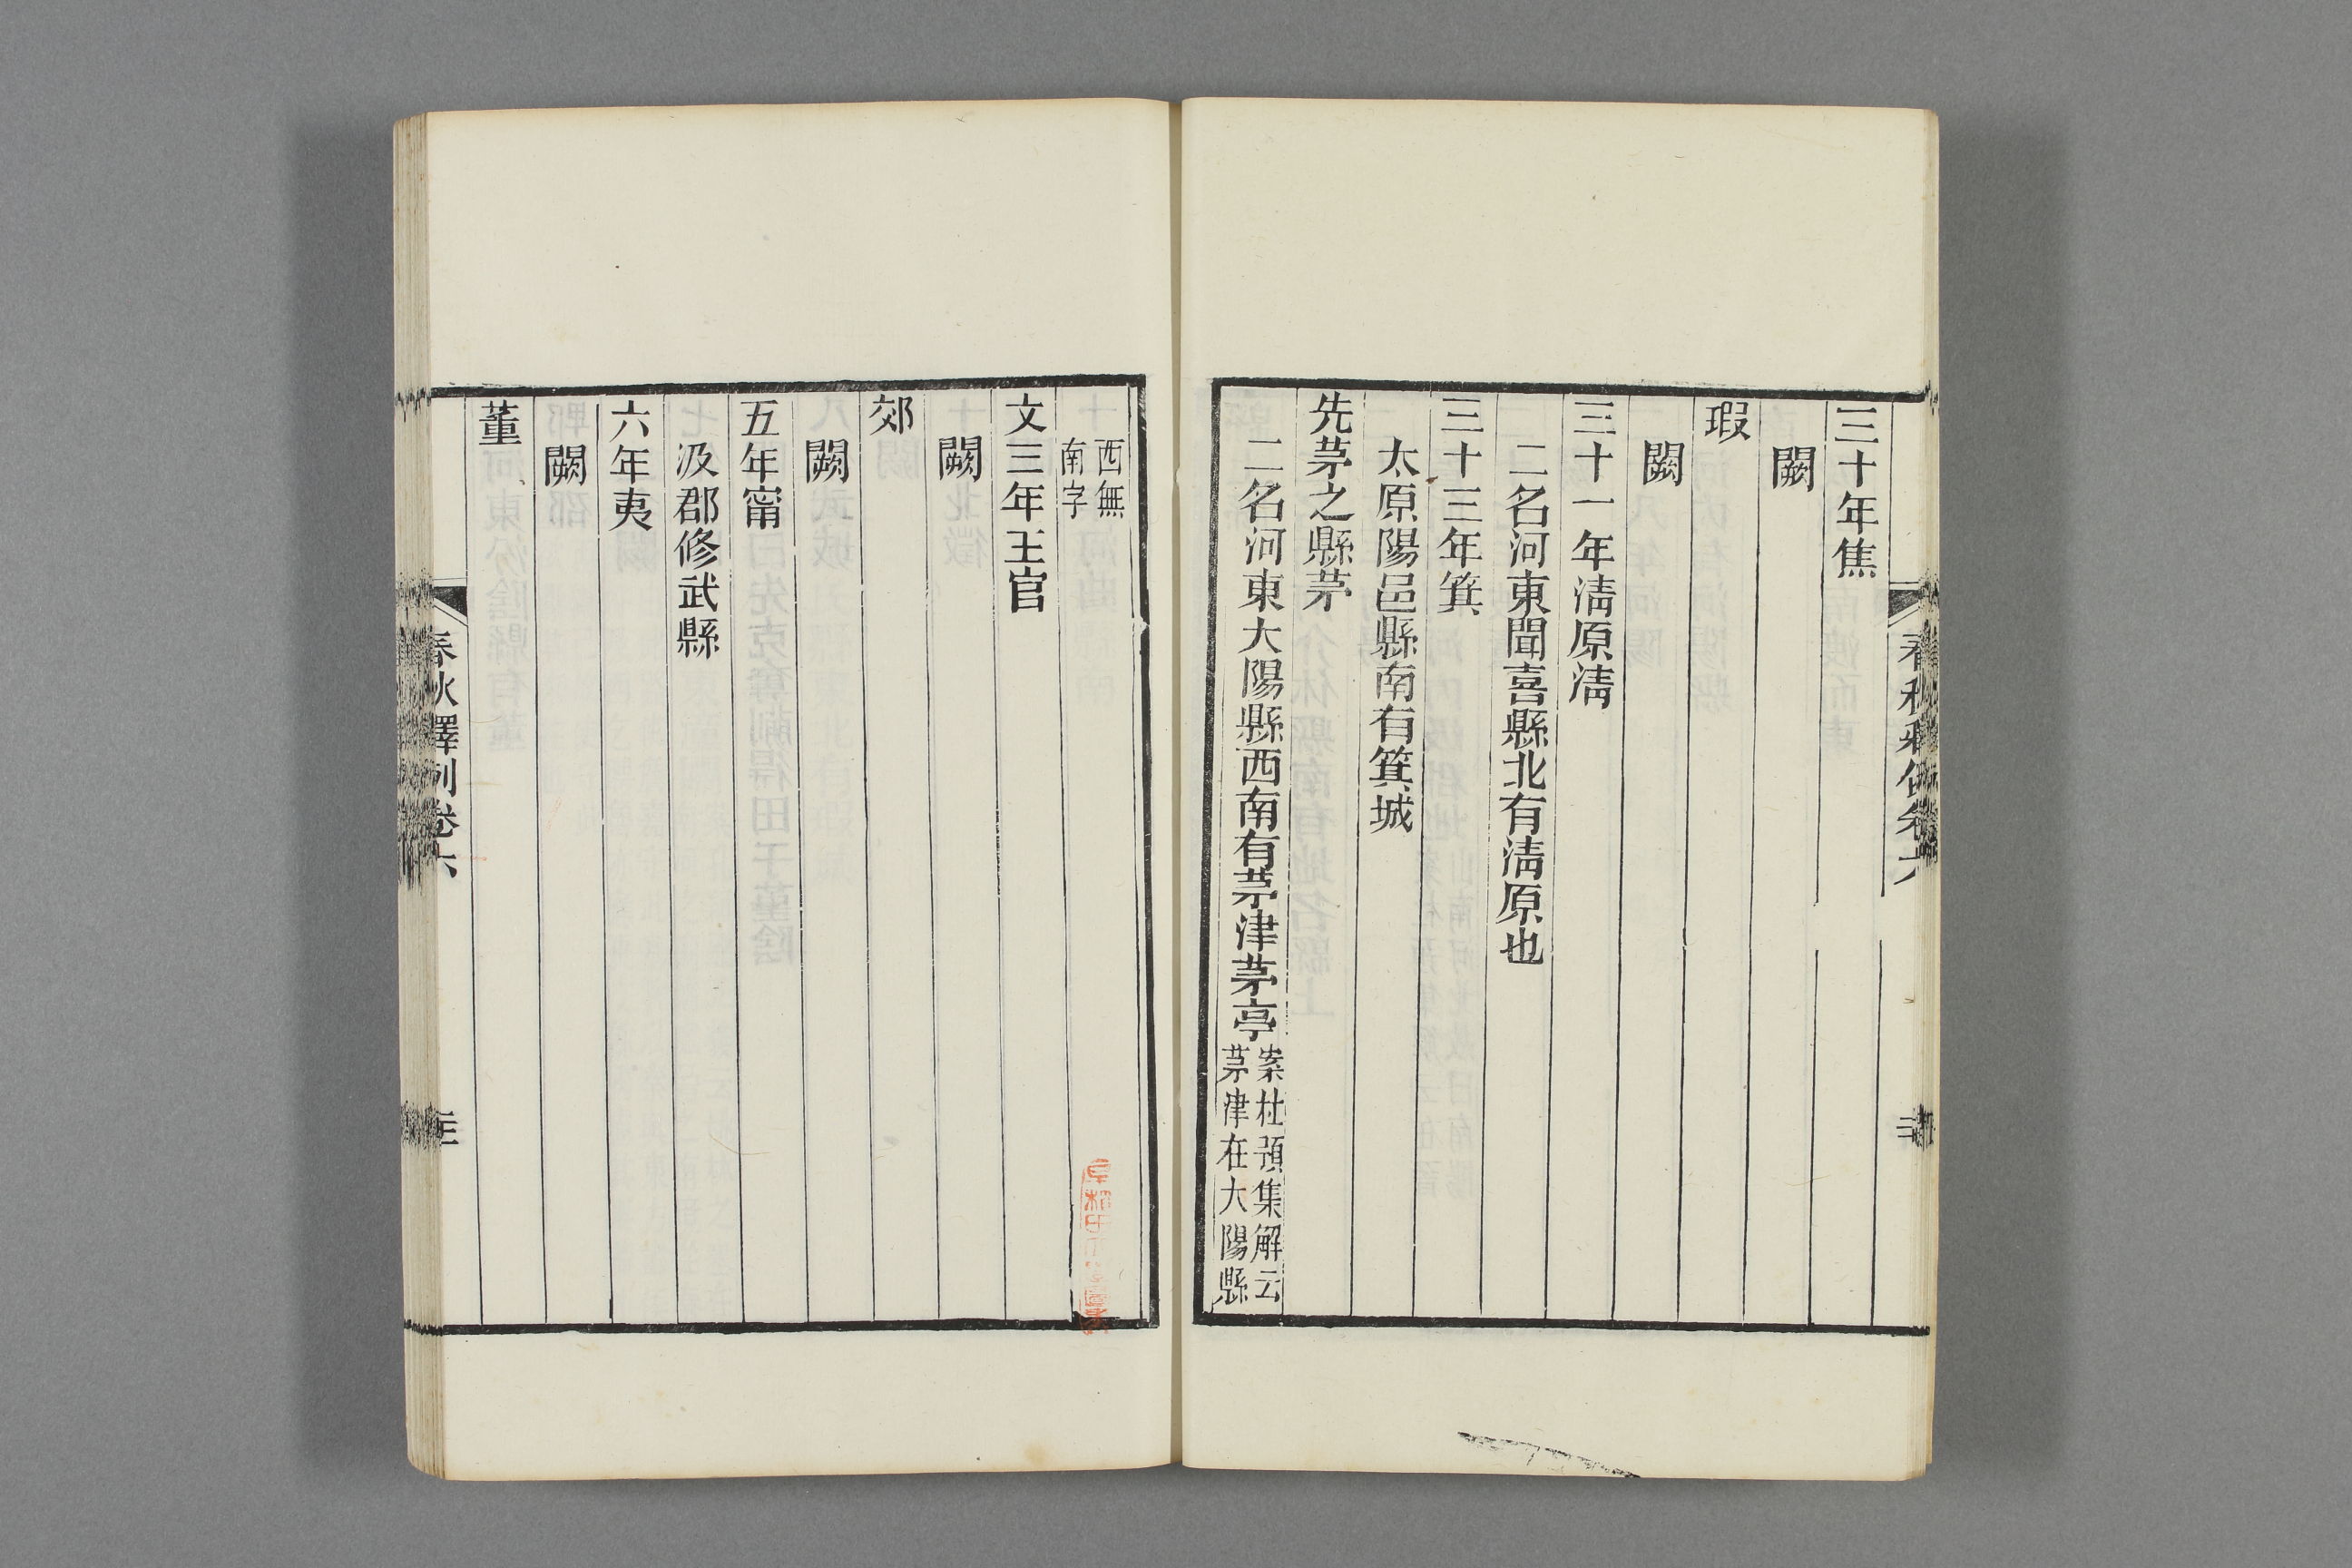 三十年焦
闕
瑕
闕
三十一年淸原淸
二名河東聞喜縣北有淸原也
三十三年箕
太原陽邑縣南有箕城
先茅之縣茅
二名河東大陽縣西南有茅津茅亭
案杜預集解云
茅津在大陽縣
西無
南字
文三年王官
闕
郊
闕
五年甯
汲郡修武縣
六年夷
闕
董
春秋釋例卷六